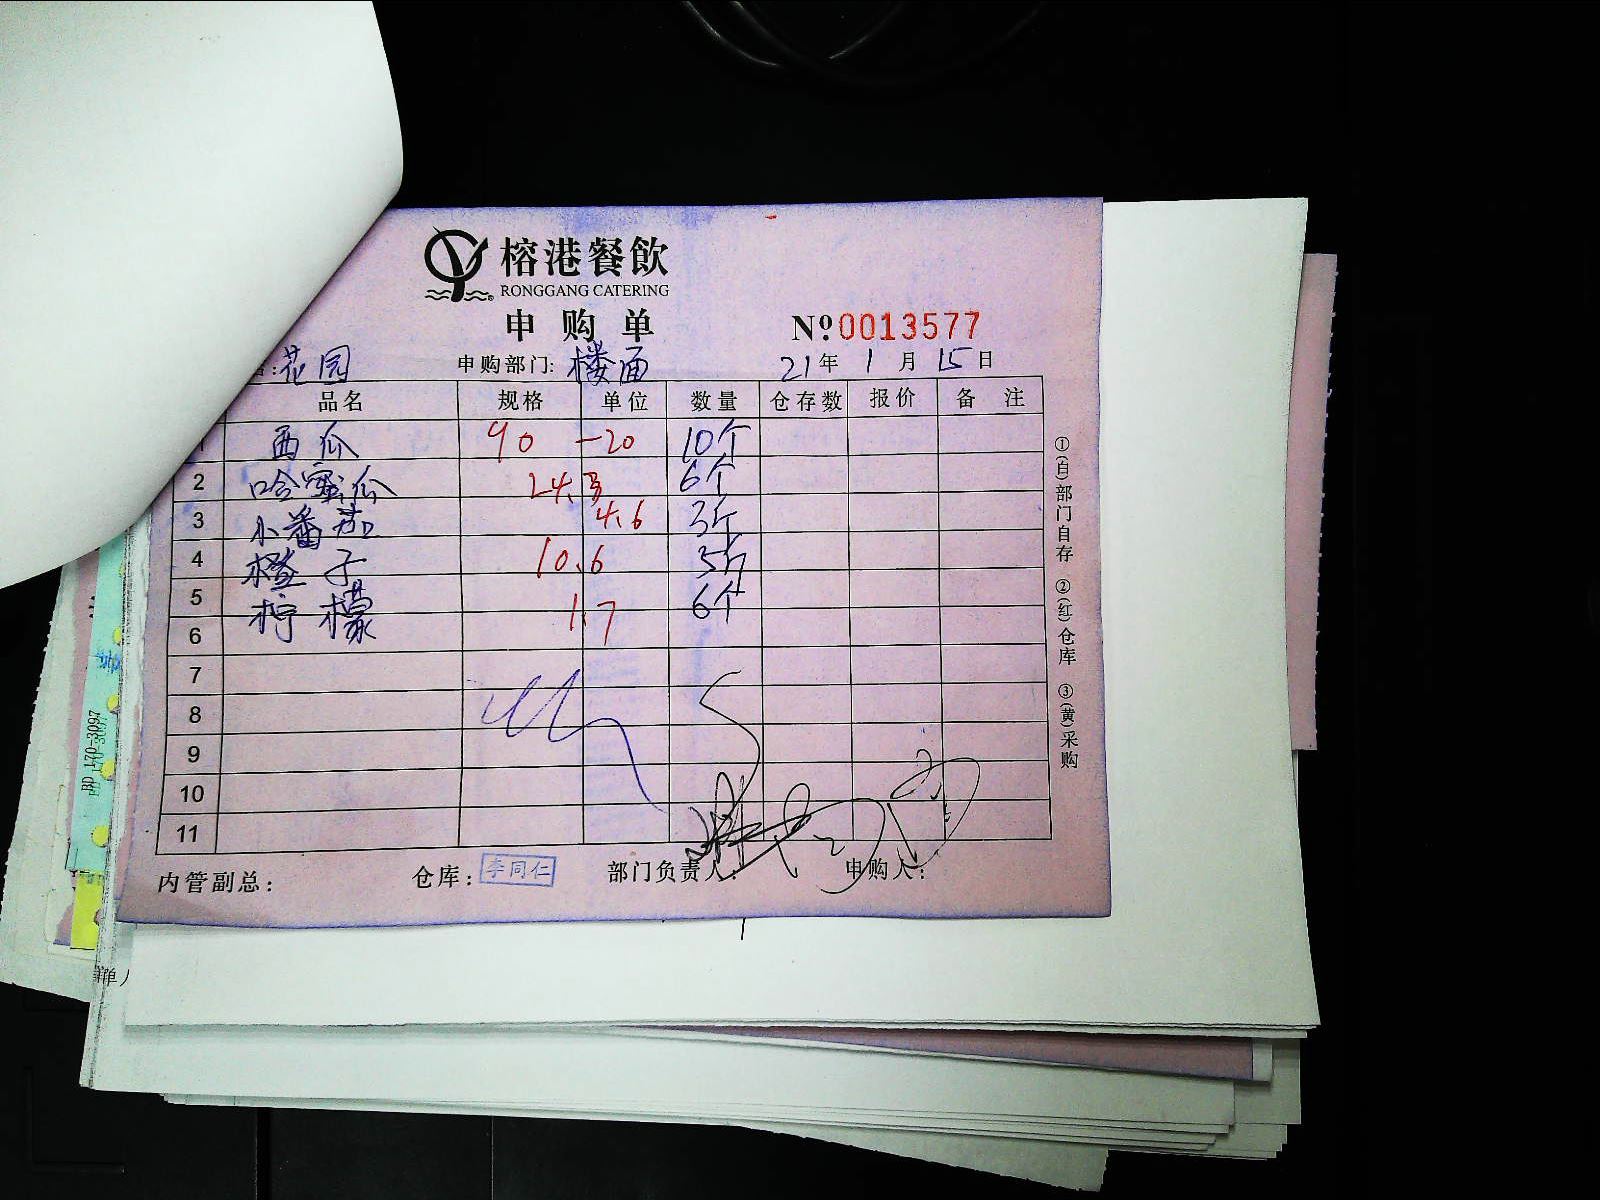 榕港餐飲
RONGGANG CATERING
申购单
№ 0013577
花园 申购部门: 楼面 21年 1月 15日
品名 规格 单位 数量 仓存数 报价 备注
1 西瓜 90 -20 10个
2 哈蜜瓜 24.3 6个
3 小番茄 4.6 3斤
4 橙子 10.6 5斤
5 柠檬 1.7 6个
6
7
8
9
10
11
内管副总: 仓库: 李同仁 部门负责人: 申购人:
①(白)部门自存 ②(红)仓库 ③(黄)采购
BD 170-3097
单人